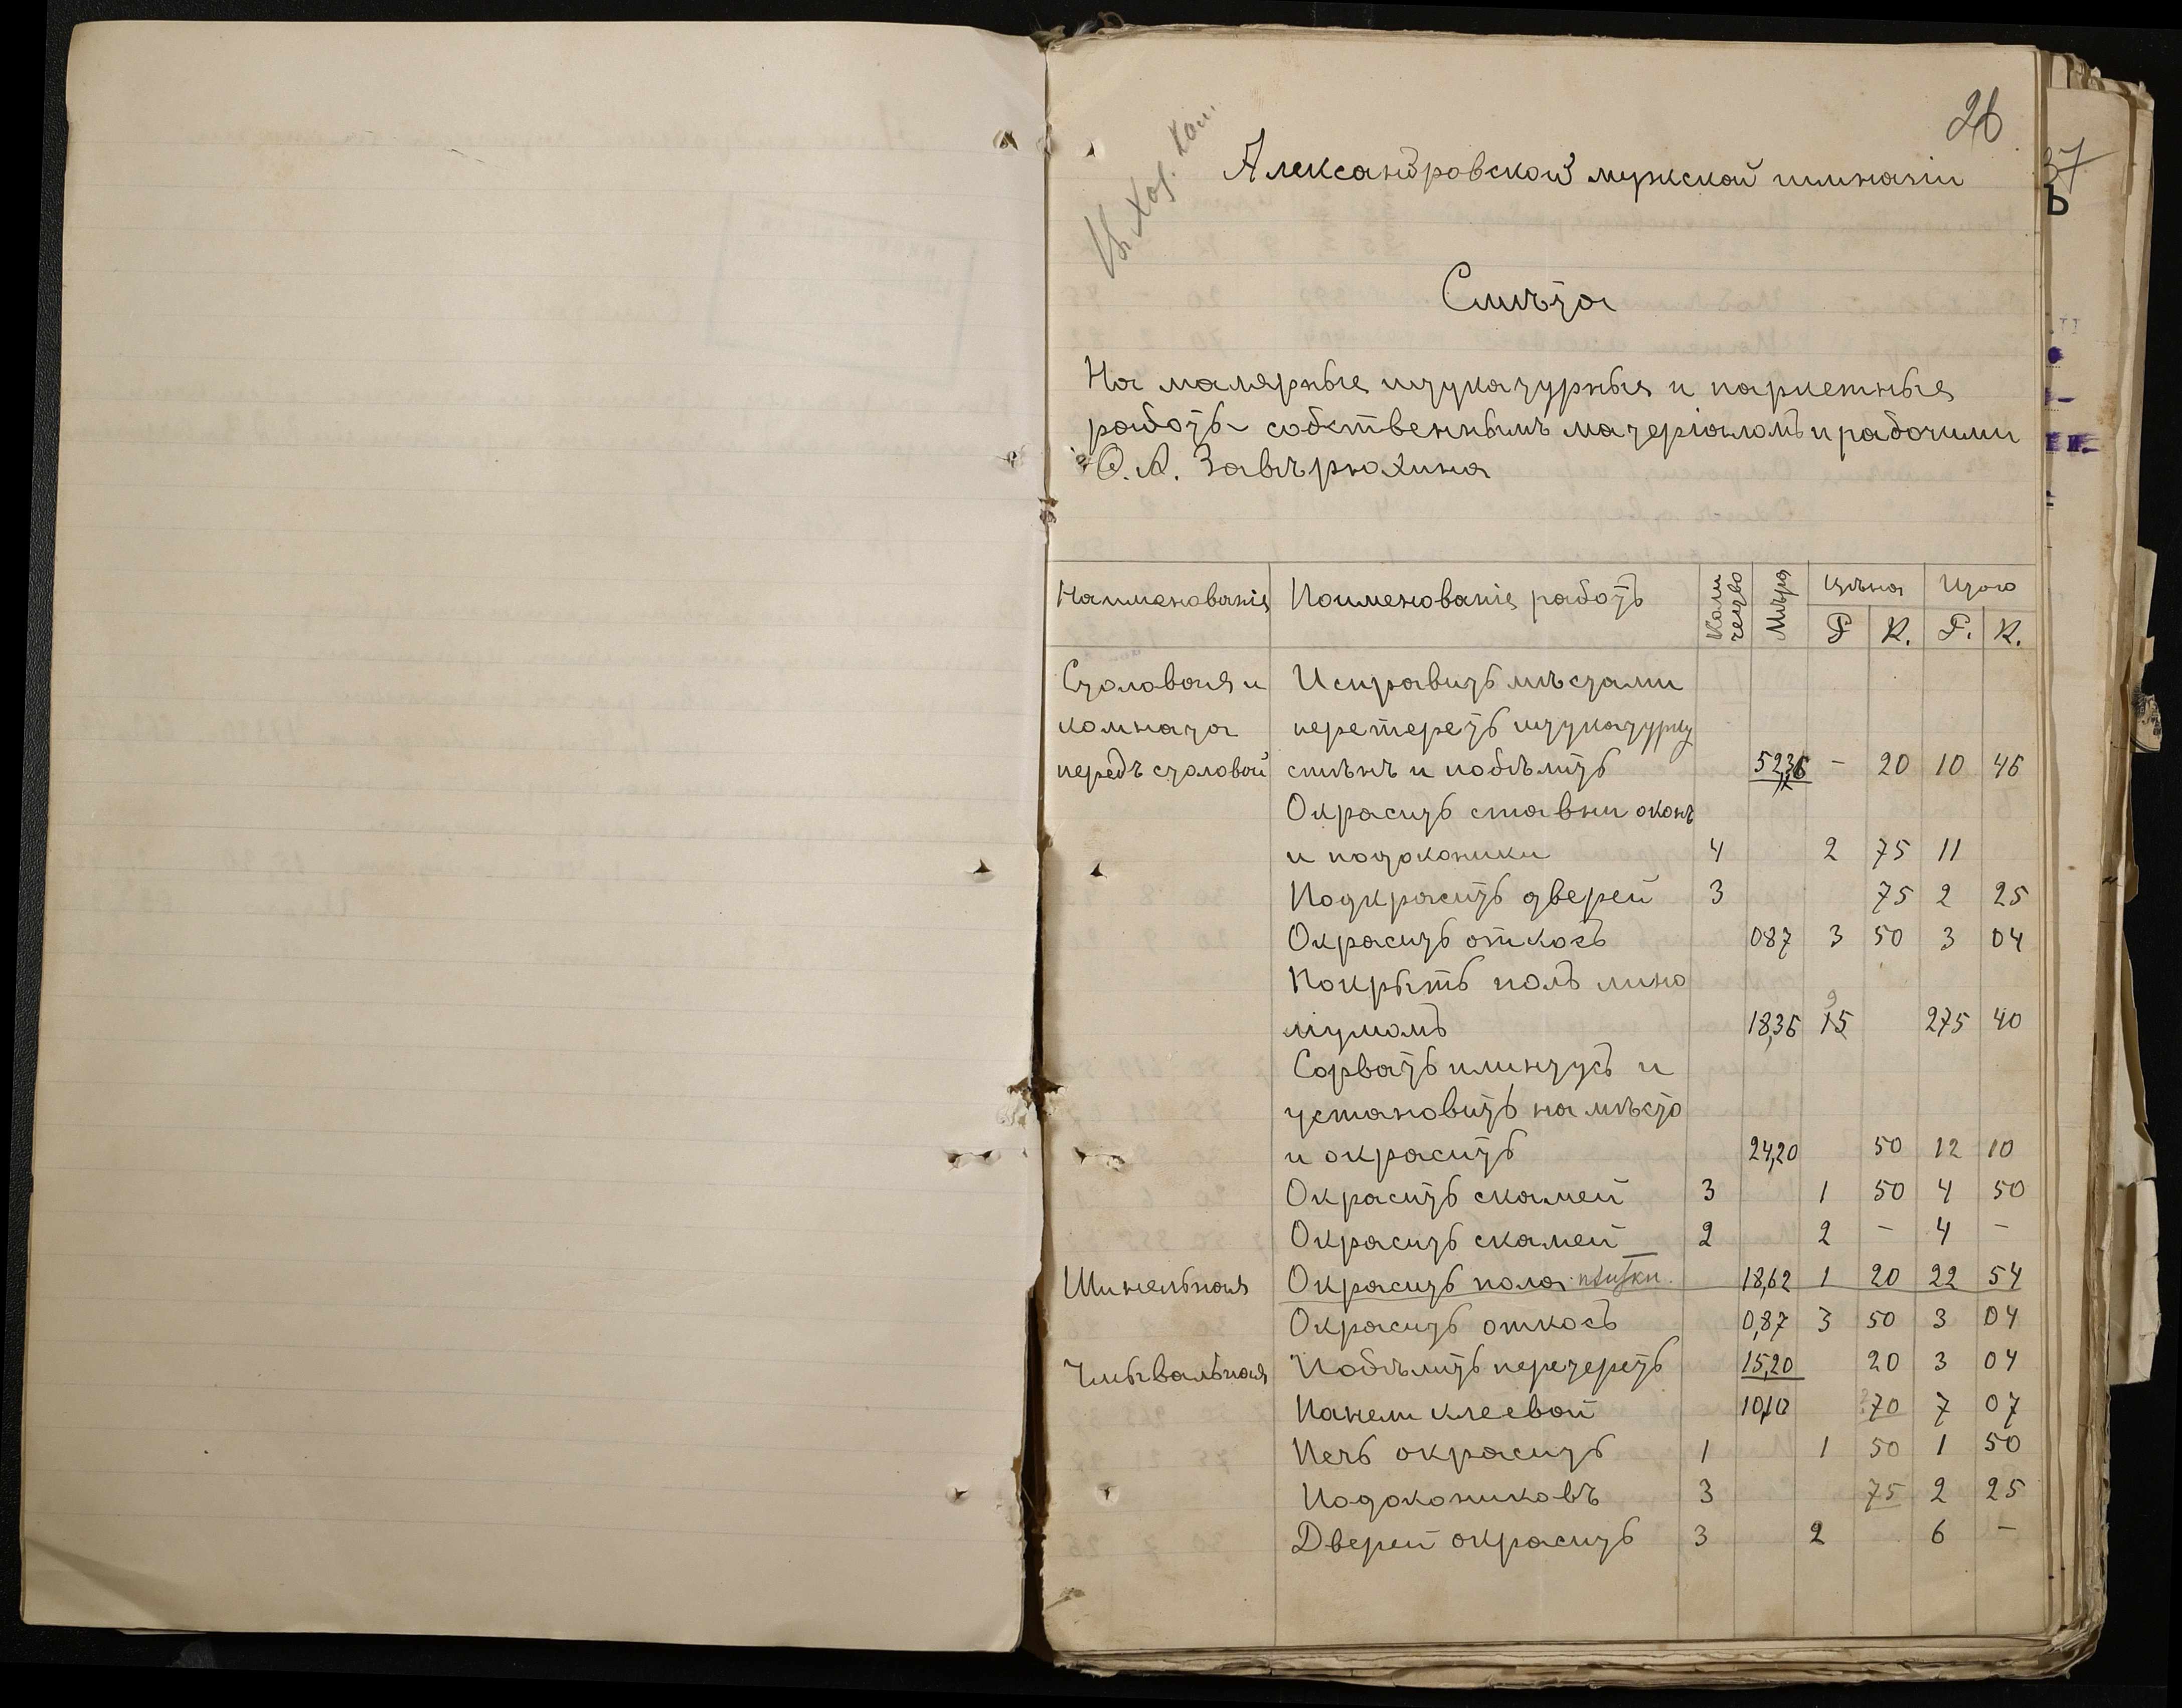 26
Александровской мужской гимназіи
Смѣта
На малярные штукатурныя и паркетныя
работы собственнымъ матеріаломъ и рабочими
Ѳ. А. Завѣрюхина
37
Ъ
Наименованіе Наименованіе работъ Количество Мѣра Цѣна Итого
Р К. Р. К.
Столовая и Исправить мѣстами
комната перетереть штукатурку
передъ столовой стѣнъ и побѣлить 52,36 – 20 10 46
Окрасить ставни оконъ
и подоконики 4 2 75 11
Подкрасить дверей 3 75 2 25
Окрасить откосъ 087 3 50 3 04
Покрыть полъ лино
лiумомъ 18,36 15 275 40
Сорвать плинтусъ и
установить на мѣсто
и окрасить 24,20 50 12 10
Окрасить скамей 3 1 50 4 50
Окрасить скамей 2 2 – 4 –
Шинельная Окрасить пола плитки. 18,62 1 20 22 54
Окрасить откосъ 0,87 3 50 3 04
Умывальная Побѣлить перетереть 15,20 20 3 04
Панели клеевой 10,10 70 7 07
Печь окрасить 1 1 50 1 50
Подокониковъ 3 75 2 25
Дверей окрасить 3 2 6 –